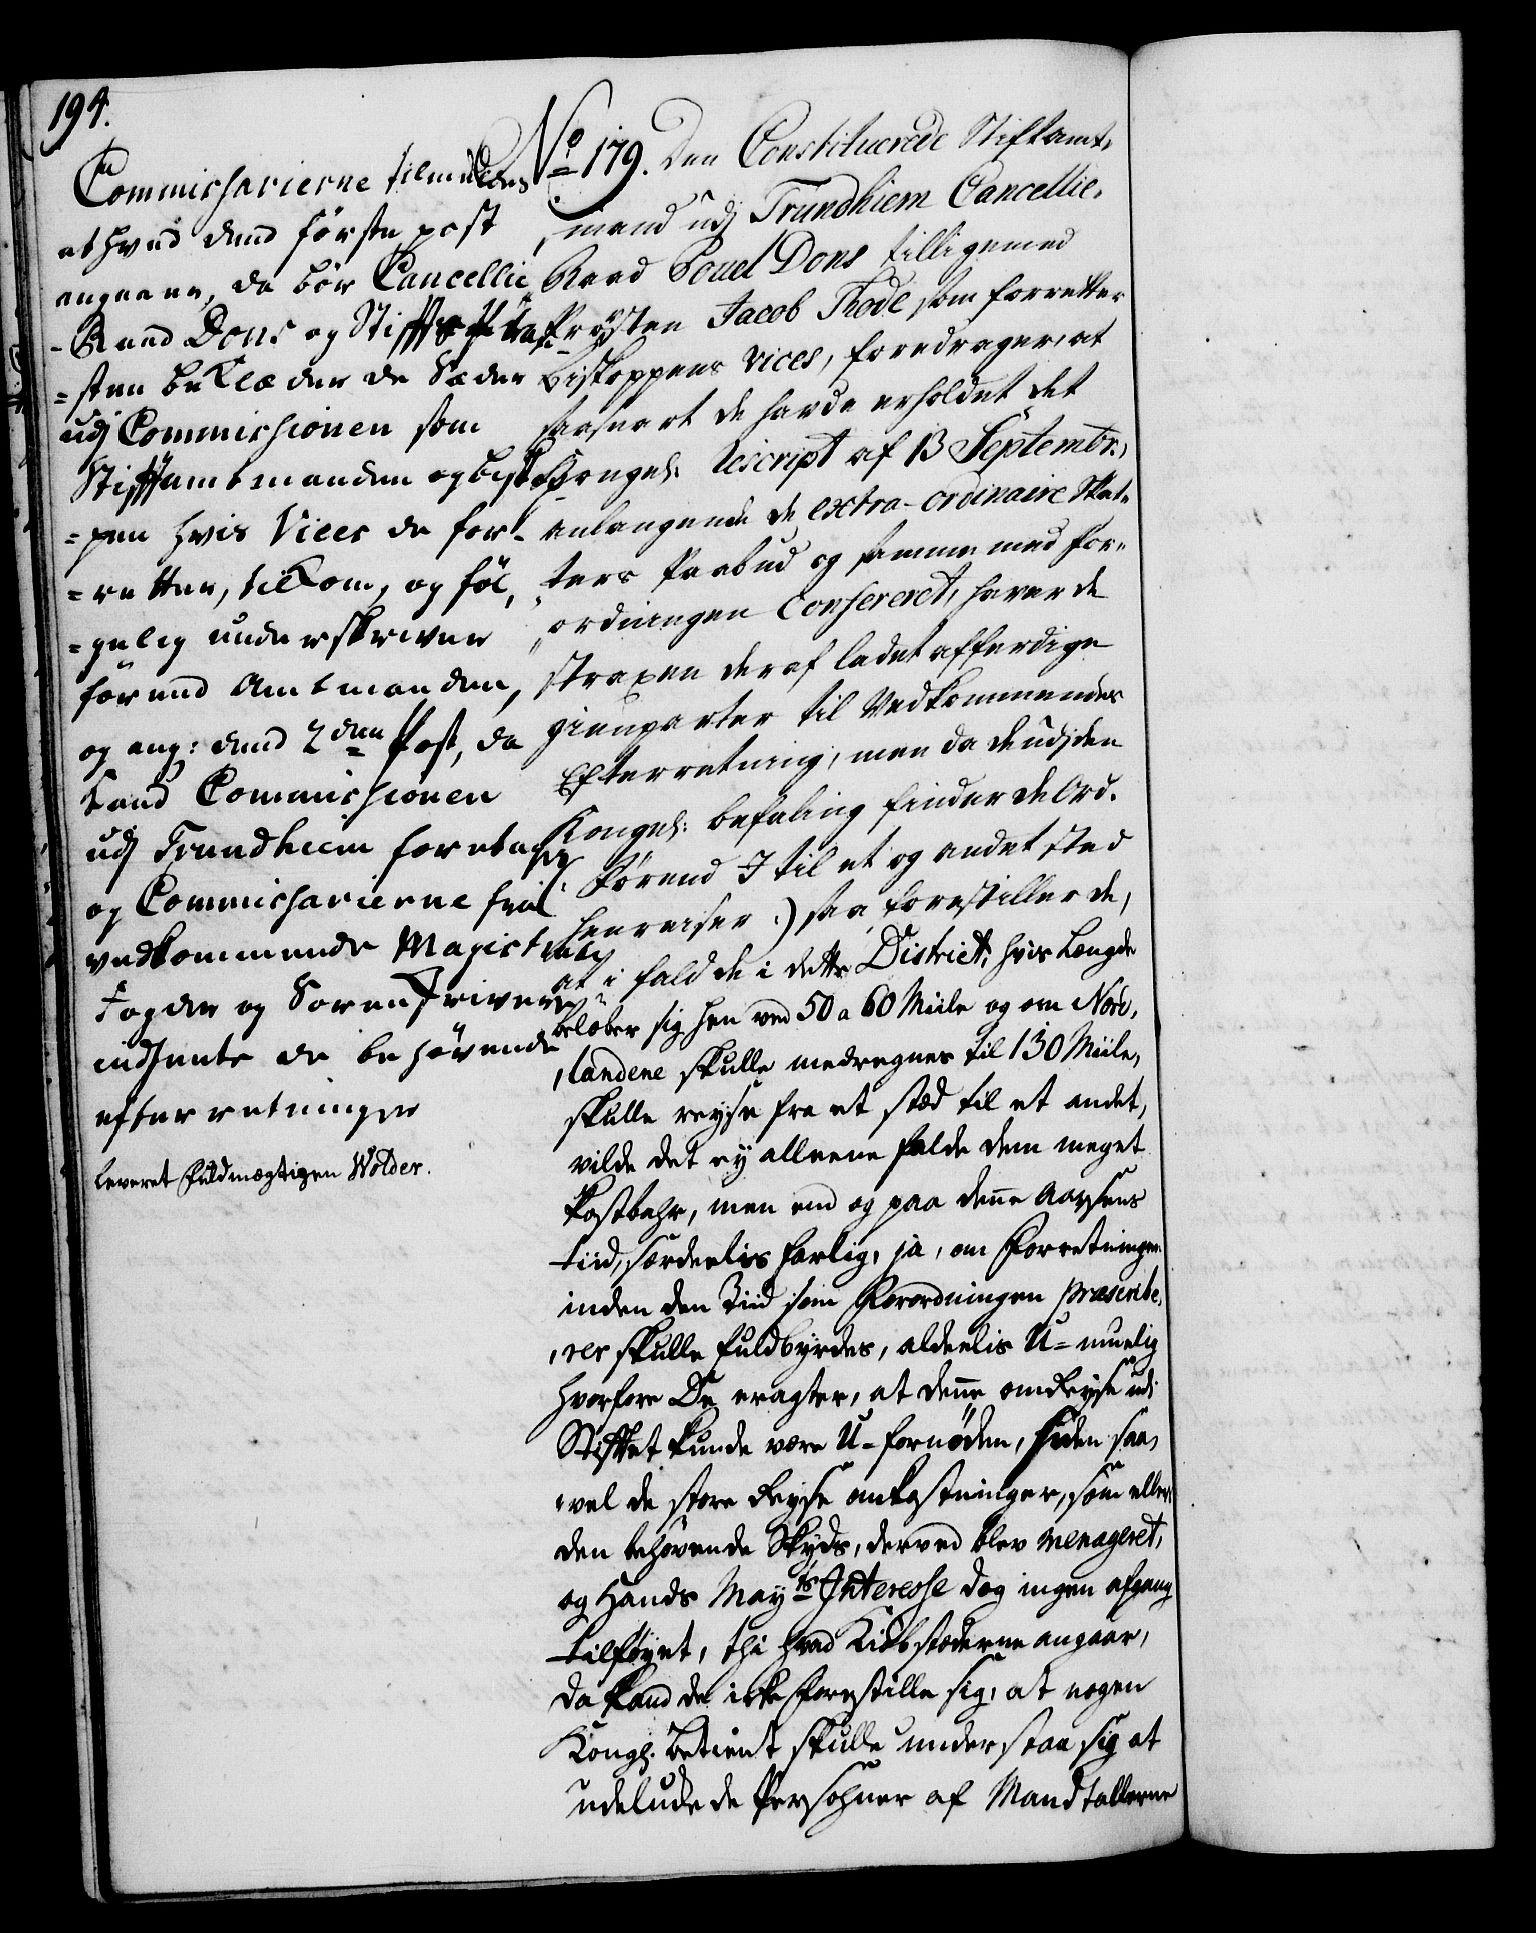 194.
Commissarierne tilmeldes
at hvad dend første post
angaaer, da bør Cancellie
-Raad Dons og Stiffts Prou-
=sten beklæder de Sæder
udj Commissionen som
Stifftamtmanden og bisko-
=pen hvis Vices de for-
=retter, tilkom, og føl,
=gelig underskriver
førend Amtmanden,
og ang: dend 2den Post, da
kand Commissionen
udj Trundhiem foretages
og Commissarierne fra
vedkommende Magistrater
Fogder og Sorenskrivere
indhente de behøvende
efterretninger
leveret Fuldmægtigen Wolder.
No 179. Den Constituerede Stiftamt,
,mand udj Trundhiem Cancellie,
Raad Povel Dons tilligemed
Provsten Jacob Thode som forretter
Biskoppens vices, foredrager, at
saasnart de havde erholdet det
Kongel: rescript af 13 Septembr:,
anlangende de extra-ordinaire Skat,
ters Paabud og samme med For,
,ordningen Confereret, haver de
straxen deraf ladet afferdige
gienparter til Vedkommendes
Efterretning, men da de udj den
Kongel: befaling finder de Ord.
(: Førend I til et og andet sted
henreiser :) saa forestiller de,
at i fald de i dette District, hvis Længde
beløber sig hen ved 50 a 60 Miile og om Nord,
,landene skulle medregnes til 130 Miile,
skulle reyse fra et stæd til et andet,
vilde det ey alleene falde dem meget
kostbahr, men end og paa denne Aarsens
tiid, særdeelis farlig, ja, om Forretningen
inden den Tiid som Forordningen præscribe,
,rer skulle fuldbyrdes, aldeelis U-muelig
hvorfore De eragter, at denne omReyse udi
Stifftet kunde være U-fornøden, siden saa,
,vel de store Reyse omkostninger, som eller
den behøvende Skyds, derved blev menageret,
og Hands Mayts Interesse dog ingen afgang
tilføyet, thi hvad Kiøbstæderne angaar,
da kand de icke forestille sig, at nogen
Kongl. betient skulle understaa sig at
udelucke de Persohner af Mandtallerne